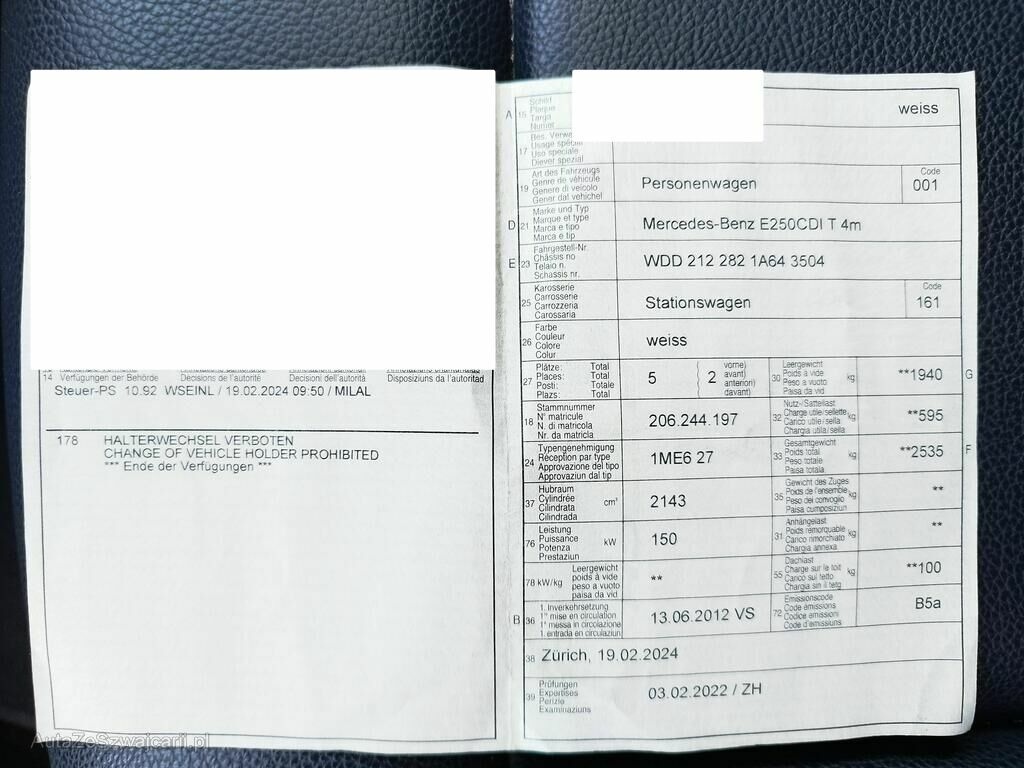 14 Verfügungen der Behörde Décisions de l'autorité Decisioni dell'autorità Disposiziuns da l'autoritad
Steuer-PS 10.92 WSEINL / 19.02.2024 09:50 / MILAL
178 HALTERWECHSEL VERBOTEN
CHANGE OF VEHICLE HOLDER PROHIBITED
*** Ende der Verfügungen ***
A 15 Schild
Plaque
Targa
Numer
weiss
17 Bes. Verwe
Usage spéci
Uso speciale
Diever spezial
19 Art des Fahrzeugs
Genre de véhicule
Genere di veicolo
Gener dal vehichel
Personenwagen
Code
001
D 21 Marke und Typ
Marque et type
Marca e tipo
Marca e tip
Mercedes-Benz E250CDI T 4m
E 23 Fahrgestell-Nr.
Châssis no
Telaio n.
Schassis nr.
WDD 212 282 1A64 3504
25 Karosserie
Carrosserie
Carrozzeria
Carossaria
Stationswagen
Code
161
26 Farbe
Couleur
Colore
Colur
weiss
27 Plätze: Total
Places: Total
Posti: Totale
Plazs: Total
5
( 2 vorne)
avant)
anteriori)
davant)
30 Leergewicht
Poids à vide
Peso a vuoto
Paisa da vid
kg
**1940
G
18 Stammnummer
N° matricule
N. di matricola
Nr. da matricla
206.244.197
32 Nutz-/Sattellast
Charge utile/sellette
Carico utile/sella
Chargia utila/sella
kg
**595
24 Typengenehmigung
Réception par type
Approvazione del tipo
Approvaziun dal tip
1ME6 27
33 Gesamtgewicht
Poids total
Peso totale
Paisa totala
kg
**2535
F
37 Hubraum
Cylindrée
Cilindrata
Cilindrada
cm³
2143
35 Gewicht des Zuges
Poids de l'ensemble
Peso del convoglio
Paisa cumposiziun
kg
**
76 Leistung
Puissance
Potenza
Prestaziun
kW
150
31 Anhängelast
Poids remorquable
Carico rimorchiato
Chargia annexa
kg
**
78 kW/kg Leergewicht
poids à vide
peso a vuoto
paisa da vid
**
55 Dachlast
Charge sur le toit
Carico sul tetto
Chargia sin il tetg
kg
**100
B 36 1. Inverkehrsetzung
1re mise en circulation
1a messa in circolazione
1. entrada en circulaziun
13.06.2012 VS
72 Emissionscode
Code émissions
Codice emissioni
Code d'emissiuns
B5a
38 Zürich, 19.02.2024
39 Prüfungen
Expertises
Perizie
Examinaziuns
03.02.2022 / ZH
AutaZeSzwajcarii.pl